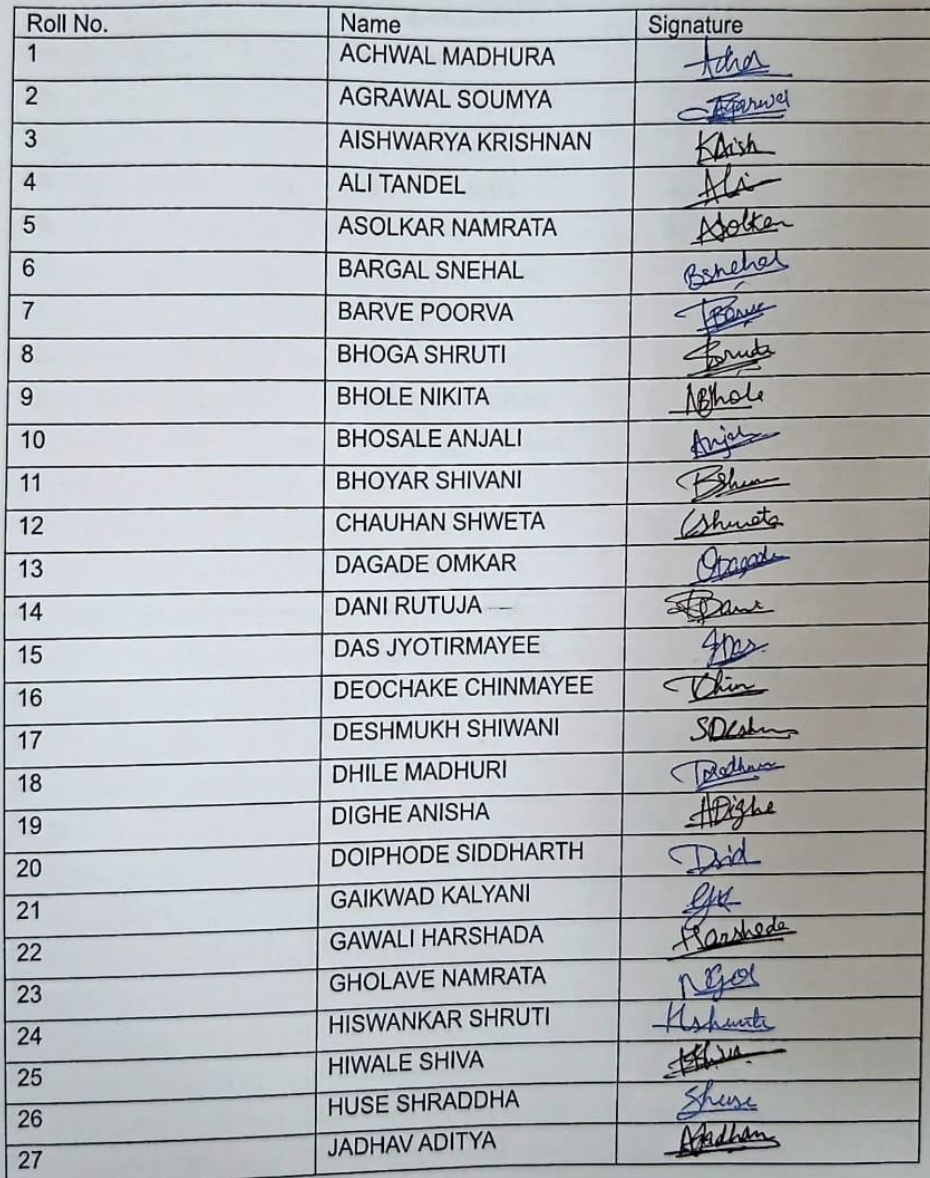 Roll No. Name Signature
1 ACHWAL MADHURA
2 AGRAWAL SOUMYA Agarwal
3 AISHWARYA KRISHNAN KAish
4 ALI TANDEL Ali
5 ASOLKAR NAMRATA
6 BARGAL SNEHAL Bsnehal
7 BARVE POORVA
8 BHOGA SHRUTI
9 BHOLE NIKITA NBhole
10 BHOSALE ANJALI
11 BHOYAR SHIVANI
12 CHAUHAN SHWETA
13 DAGADE OMKAR
14 DANI RUTUJA
15 DAS JYOTIRMAYEE
16 DEOCHAKE CHINMAYEE
17 DESHMUKH SHIWANI
18 DHILE MADHURI
19 DIGHE ANISHA ADighe
20 DOIPHODE SIDDHARTH Dsid
21 GAIKWAD KALYANI
22 GAWALI HARSHADA
23 GHOLAVE NAMRATA
24 HISWANKAR SHRUTI
25 HIWALE SHIVA
26 HUSE SHRADDHA Shuse
27 JADHAV ADITYA